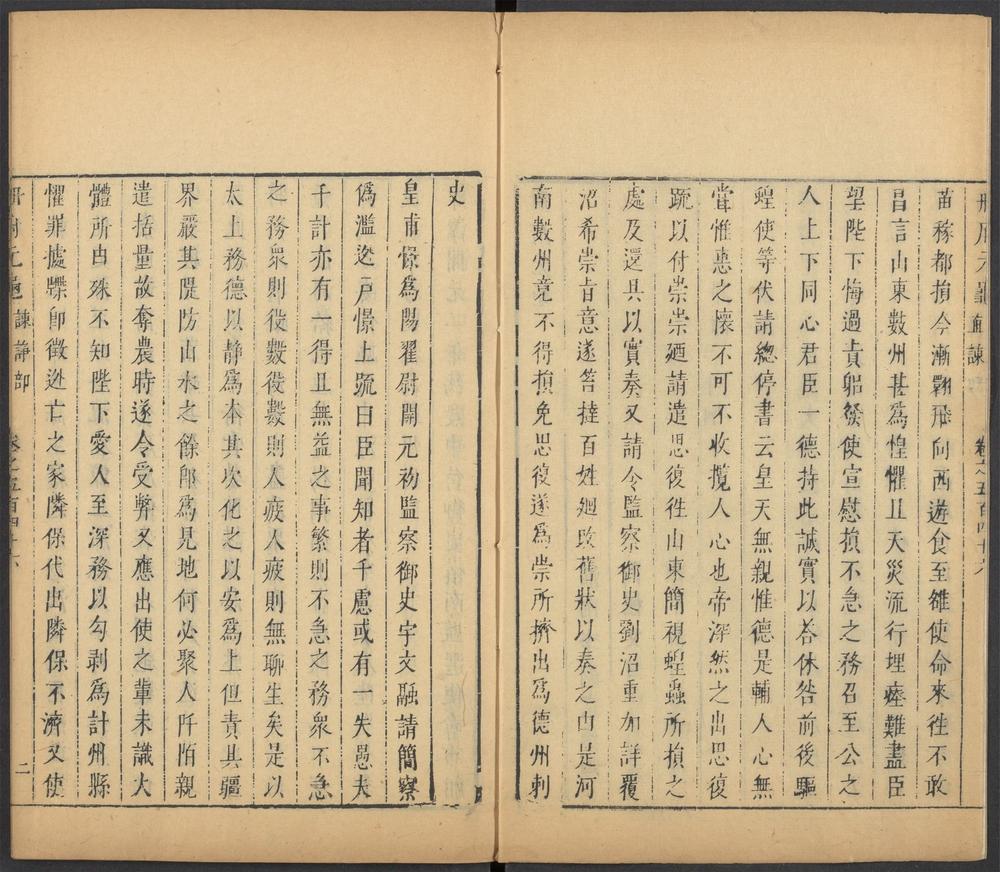 冊府元龜直諫 卷之五百四十六
苗稼都損今漸翾飛向西遊食至雒使命來徃不敢
昌言山東數州甚爲惶懼且天災流行埋瘞難盡臣
望陛下悔過責躬發使宣慰損不急之務召至公之
人上下同心君臣一德持此誠實以荅休咎前後驅
蝗使等伏請總停書云皇天無親惟德是輔人心無
甞惟惠之懷不可不收攬人心也帝深然之出思復
䟽以付崇崇廼請遣思復徃山東簡視蝗蟲所損之
處及還具以實奏又請令監察御史劉沼重加詳覆
沼希崇旨意遂笞撻百姓廻改舊狀以奏之由是河
南數州竟不得損免思復遂爲崇所擠出爲德州刺
史
皇甫憬爲陽翟尉開元初監察御史宇文融請簡察
僞濫逃戸憬上䟽曰臣聞知者千慮或有一失愚夫
千計亦有一得且無益之事繁則不急之務衆不急
之務衆則役數役數則人疲人疲則無聊生矣是以
太上務德以静爲本其次化之以安爲上但責其疆
界嚴其隄防山水之餘即爲見地何必聚人阡陌親
遣括量故奪農時遂令受弊又應出使之輩未識大
體所由殊不知陛下愛人至深務以勾剥爲計州縣
懼罪據牒即徵逃亡之家隣保代出隣保不濟又使
冊府元龜諫諍部 卷之五百四十六 二